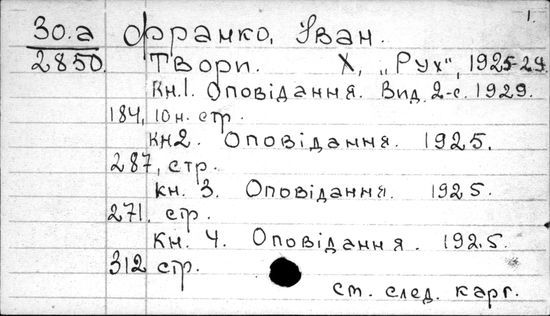 1.
30.а Франко, Іван.
2850. Твори. Х, „Рух", 1925-29.
Кн.1. Оповідання. Вид. 2-е. 1929.
184, 10н. стр.
Кн2. Оповідання. 1925.
287, стр.
кн. 3. Оповідання. 1925.
271. стр.
Кн. 4. Оповідання. 1925.
312 стр.
см. след. карт.